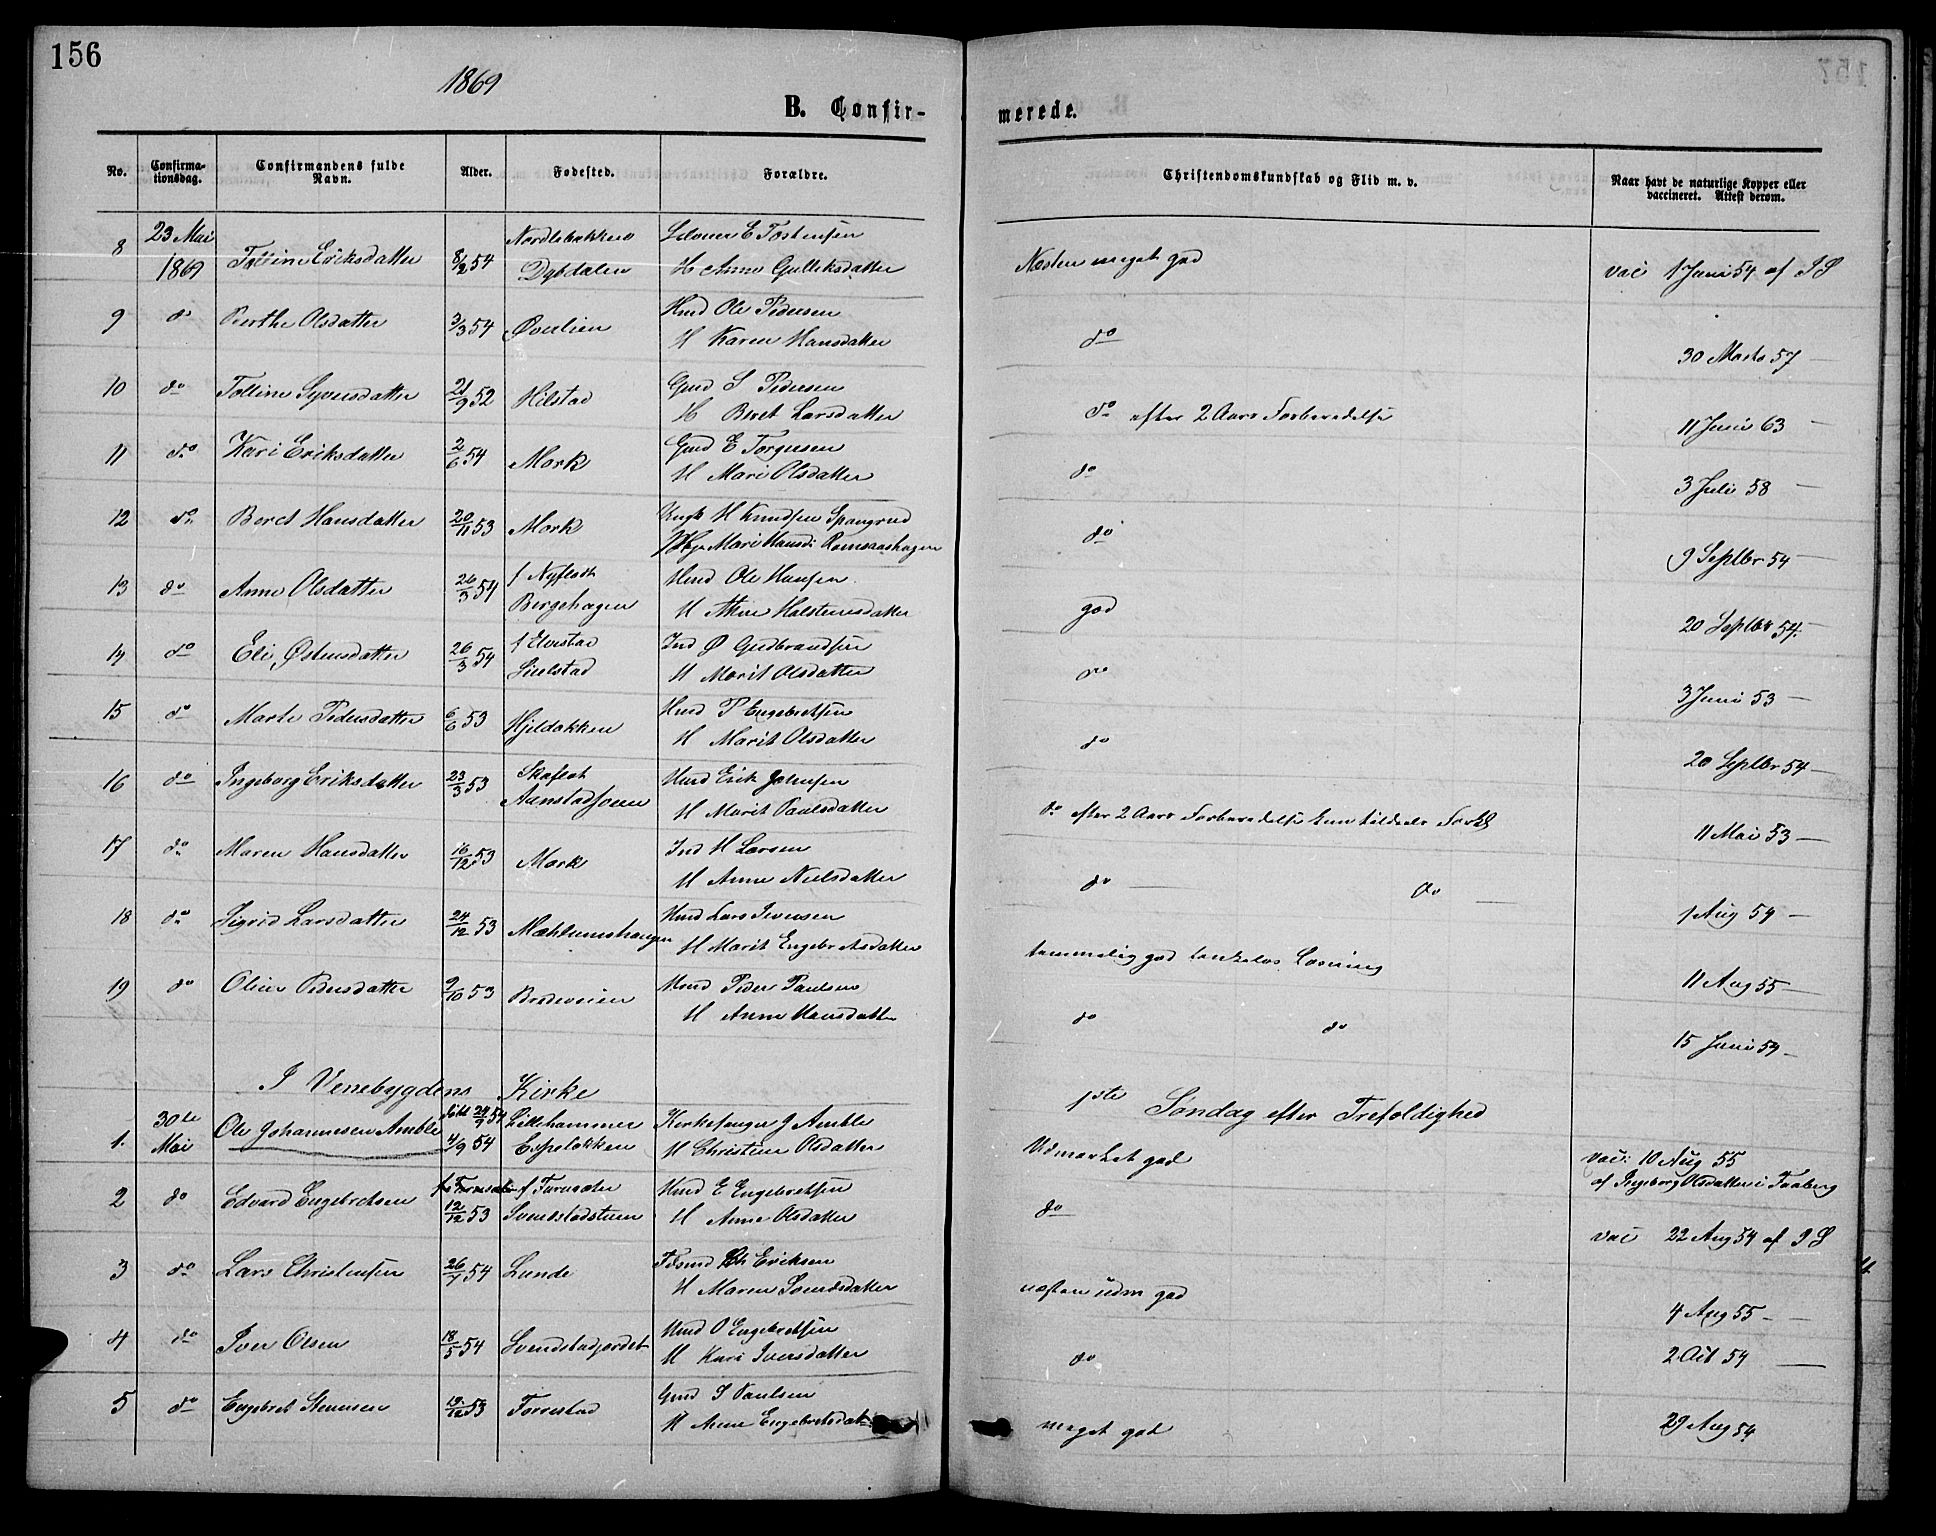 156
1869
B. Confirmerede.
No. Confirmationsdag. Confirmandens fulde Navn. Alder. Fødested. Forældre. Christendomskundskab og Flid m. v. Naar havt de naturlige Kopper eller vaccineret. Attest derom.
8 23 Mai 1869 Eriksdatter 8/2 54 Dybdalen E Tostensen
H Anne Gulliksdatter Næsten meget god vac 1 Juni 54 af I S
9 do Berthe Olsdatter 3/3 54 Øverlien Hmd Ole Pedersen
H Karen Hansdatter do 30 Marts 57 —
10 do Tolline Syversdatter 21/9 52 Hilstad Gmd S Pedersen
H Beret Larsdatter do efter 2 Aars Forberedelse 11 Juni 63 —
11 do Kari Eriksdatter 2/6 54 Mork Gmd E Torgersen
H Mari Olsdatter do 3 Juli 58 —
12 do Beret Hansdatter 20/11 53 Mork Ungk H Knudsen Spangrud
Pige Mari Hansd. Romsaashagen do 9 Septbr 54 —
13 do Anne Olsdatter 26/3 54 f Nyfladt
Bergehagen Hmd Ole Hansen
H Halstensdatter god 20 Septbr 54 —
14 do Eli Østensdatter 26/3 54 f Elvestad
Lielstad Ind Ø Gudbrandsen
H Marit Olsdatter do 3 Juni 53 —
15 do Marte Pedersdatter 6/6 53 Hjeldakken Hmd P Engebretsen
H Marit Olsdatter do 20 Septbr 54 —
16 do Ingeborg Eriksdatter 23/3 53 Skaflot
Aanstadsveen Hmd Erik Johnsen
H Marit Paulsdatter do efter 2 Aars Forberedelse kun tildeels Forkl 11 Mai 53 —
17 do Maren Hansdatter 16/12 53 Mork Ind H Larsen
H Anne Nielsdatter do — do — 1 Aug 54 —
18 do Sigrid Larsdatter 24/12 53 Mæhlumshaugen Hmd Lars Iversen
H Marit Engebretsdatter temmelig god tankeløs Læsning 11 Aug 55 —
19 do Oline Pedersdatter 9/10 53 Bredeveien Hmd Peder Paulsen
H Anne Hansdatter do do 15 Juni 54 —
I Venebygdens Kirke 1ste Søndag efter Trefoldighed
1. 30te Mai Ole Johannesen Amble født 24/7 54
4/9 54 Lillehammer
Espelakken Kirkesanger J Amble
H Christine Olsdatter Udmærket god vac: 10 Aug 55
af Ingeborg Olsdatter i Faaberg
2 do Edvard Engebretsen 12/12 53 f Furusæter
Svendstadstuen Hmd E Engebretsen
H Anne Olsdatter do vac 22 Aug 54 af I S
3 do Lars Christensen 26/1 54 Lunde Eriksen
H Maren Svendsdatter næsten udm god 4 Aug 55 —
4 do Iver Olsen 18/5 54 Svendstadjordet Hmd O Engebretsen
H Kari Iversdatter do 2 Oct 54 —
5 do Engebret Stenersen 19/12 53 Forrestad Gmd S Paulsen
H Anne Engebretsdat meget god 29 Aug 54